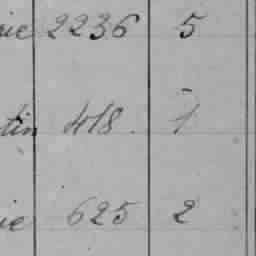 rie 2236 5
tin 418. 1
rie 625 2